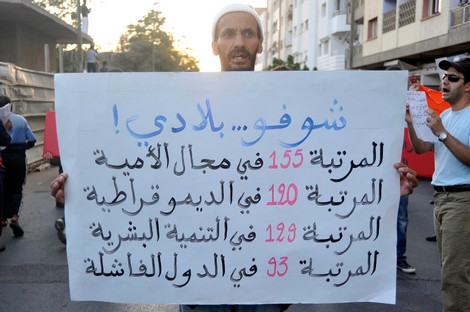 شوفو... بلادي !
المرتبة 155 في مجال الأمية
المرتبة 120 في الديموقراطية
المرتبة 129 في التنمية البشرية
المرتبة 93 في الدول الفاشلة